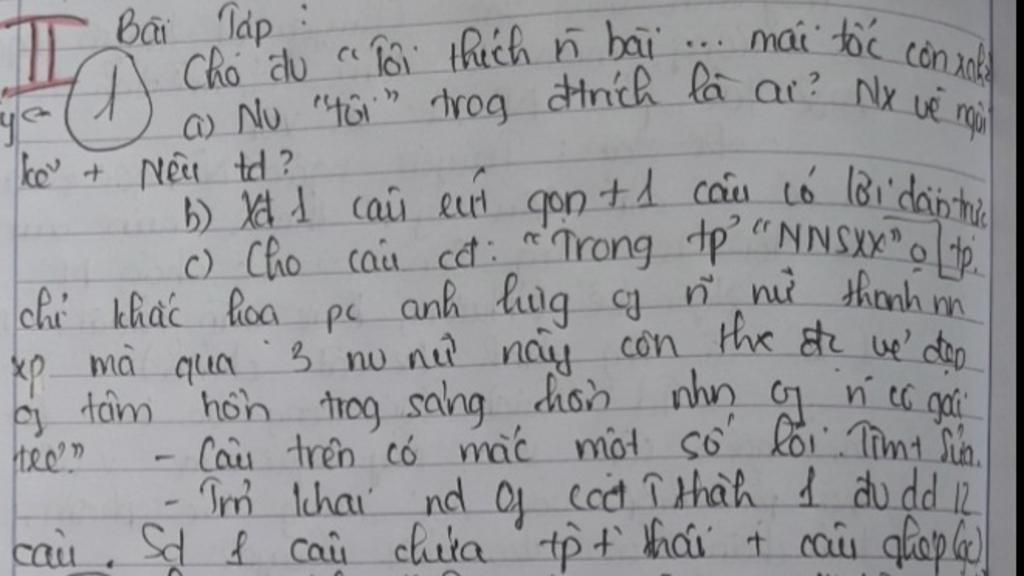 II Bài Tập:
1 Cho đv "Tôi thích n̄ bài ... mái tóc còn xanh
a) Nv "tôi" trog đtrích là ai? Nx về ngôi
kể + Nêu td?
b) Xđ 1 câu rút gọn + 1 câu có lời dẫn trực
c) Cho câu cđ: "Trong tp "NNSXX" o tp.
chỉ khắc họa pc anh hùg cg n̄ nữ thanh nn
xp mà qua 3 nv nữ này còn thx đc vẻ đẹp
cg tâm hồn trog sáng hồn nhn cg n̄ cc gái
trẻ." - Câu trên có mắc một số lỗi. Tìm + Sửa.
- Trn̉ khai nd cg ccđ T thàh 1 đv dd 12
câu. Sd 1 câu chứa tp t thái + câu ghép (gc)